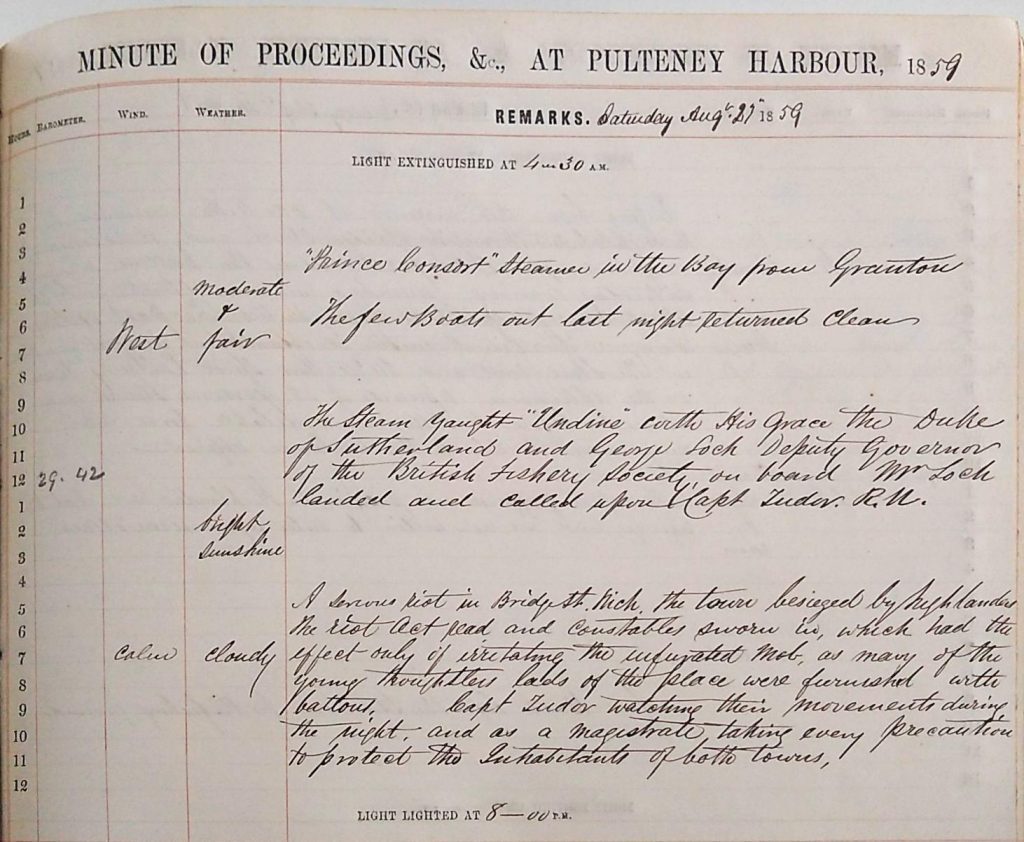 MINUTE OF PROCEEDINGS, &c., AT PULTENEY HARBOUR, 1859
HOURS. BAROMETER. WIND. WEATHER. REMARKS. Saturday Augt. 27th 1859
LIGHT EXTINGUISHED AT 4-30 A.M.
1
2
3
"Prince Consort" Steamer in the Bay from Granton
4
moderate
5
& The few Boats out last night returned Clean
6
West fair
7
8
9
The Steam Yaught "Undine" with His Grace the Duke
10
of Sutherland and George Loch Deputy Governor
11
of the British Fishery Society, on board Mr Loch
12 29.42
landed and called upon Capt Tudor. R.N.
1
bright
2
sunshine
3
4
A serious riot in Bridge St. Wick, the town besieged by highlanders
5
the riot Act read and constables sworn in, which had the
6
effect only of irritating the infuriated Mob, as many of the
7 calm cloudy
young thoughtless lads of the place were furnished with
8
battons, Capt Tudor watching their movements during
9
the night, and as a magistrate, taking every precaution
10
to protect the Inhabitants of both towns,
11
12
LIGHT LIGHTED AT 8-00 P.M.